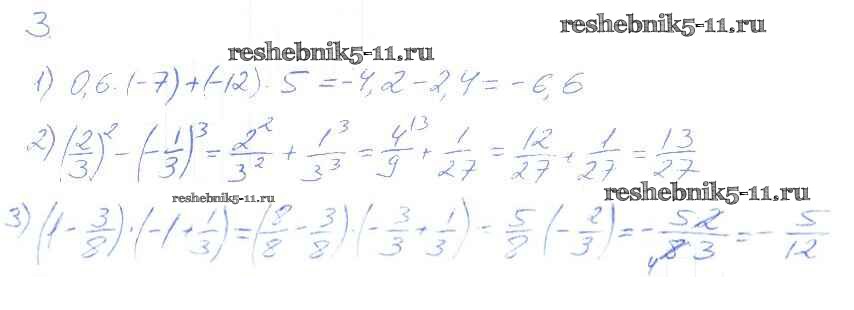 3.
reshebnik5-11.ru
reshebnik5-11.ru
1) 0,6·(-7)+(-12)·5 = -4,2-2,4 = -6,6
2) (2/3)² - (-1/3)³ = 2²/3² + 1³/3³ = 4\3/9 + 1/27 = 12/27 + 1/27 = 13/27
reshebnik5-11.ru
reshebnik5-11.ru
3) (1-3/8)·(-1+1/3) = (8/8-3/8)·(-3/3+1/3) = 5/8 (-2/3) = -5 2/8 3 = -5/12
4